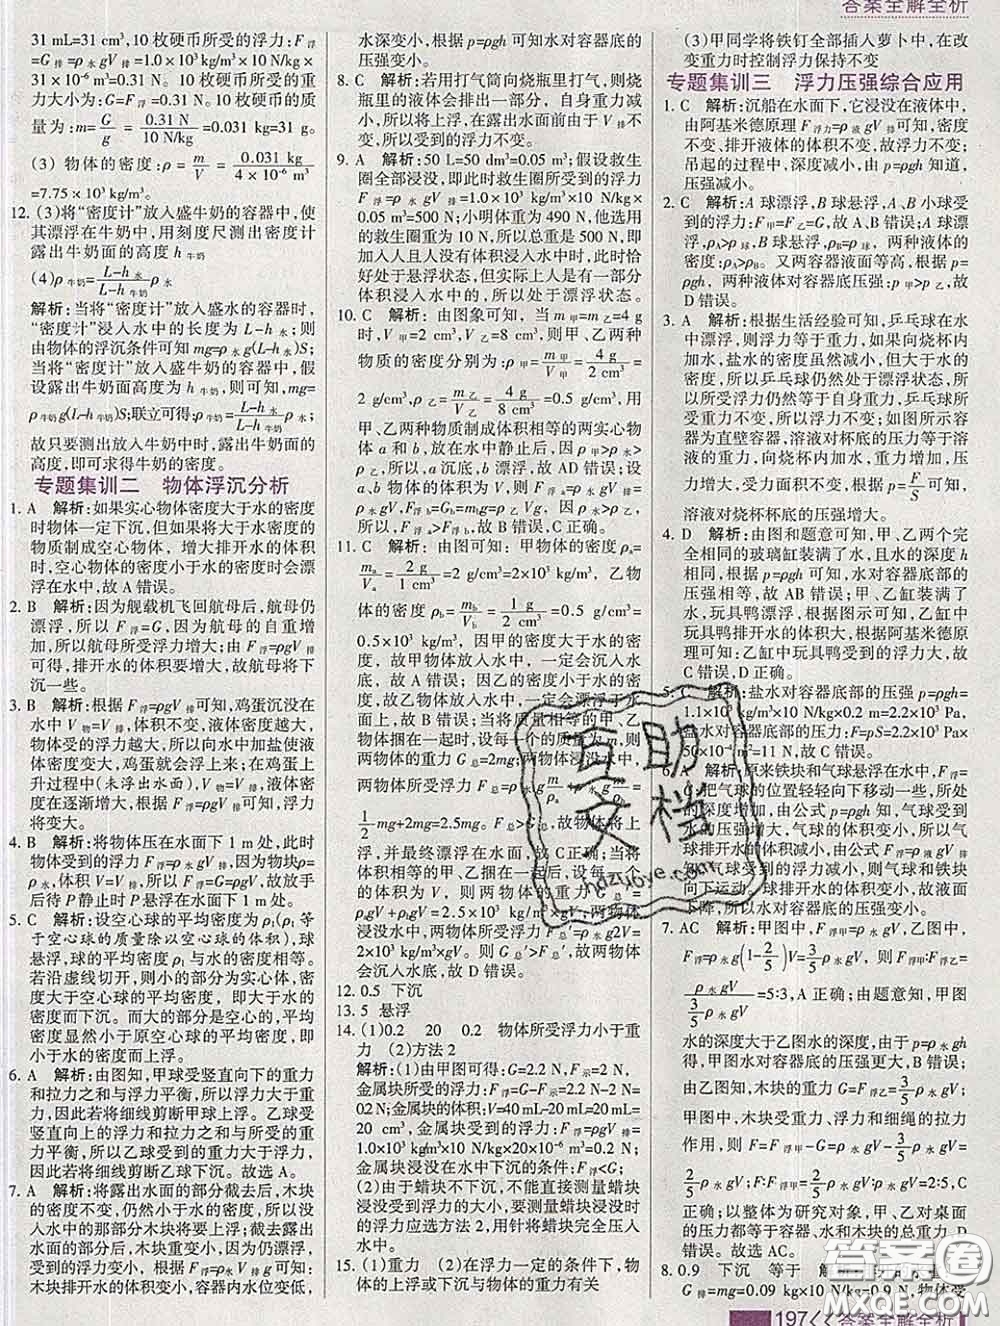 答案全解全析
31 mL=31 cm³,10枚硬币所受的浮力:F浮=G排=ρ水gV排=1.0×10³ kg/m³×10 N/kg×31×10⁻⁶ m³=0.31 N。10枚硬币所受的重力大小为:G=F浮=0.31 N,10枚硬币的质
量为:m=G/g=0.31 N/10 N/kg=0.031 kg=31 g。
(3)物体的密度:ρ=m/V=0.031 kg/4×10⁻⁶ m³
=7.75×10³ kg/m³
12. (3)将“密度计”放入盛牛奶的容器中,使
其漂浮在牛奶中,用刻度尺测出密度计
露出牛奶面的高度h牛奶
(4)ρ牛奶=L-h水/L-h牛奶 ρ水
解析:当将“密度计”放入盛水的容器时,
“密度计”浸入水中的长度为L-h水;则
由物体的浮沉条件可知mg=ρ水g(L-h水)S;
当将“密度计”放入盛牛奶的容器中,假
设露出牛奶面的高度为h牛奶,则可知,mg=
ρ牛奶g(L-h牛奶)S;联立可得:ρ牛奶=L-h水/L-h牛奶 ρ水,
故只要测出放入牛奶中时,露出牛奶面的
高度,即可求得牛奶的密度。
专题集训二 物体浮沉分析
1. A 解析:如果实心物体密度大于水的密度
时物体一定下沉,但如果将大于水密度的
物质制成空心物体,增大排开水的体积
时,空心物体的密度小于水的密度时会漂
浮在水中,故A错误。
2. B 解析:因为舰载机飞回航母后,航母仍
漂浮,所以F浮=G,因为航母的自重增
加,所以航母所受浮力增大;由F浮=ρgV排
可得,排开水的体积要增大,故航母将下
沉一些。
3. B 解析:根据F浮=ρgV排可知,鸡蛋沉没在
水中时,V物=V排,体积不变,液体密度越大,
物体受的浮力越大,所以向水中加盐使液
体密度变大,鸡蛋就会浮上来;在鸡蛋上
升过程中(未浮出水面),V物=V排,液体密
度在逐渐增大,根据F浮=ρgV排可知,浮力
将变大。
4. B 解析:将物体压在水面下1 m处,此时
物体受到的浮力F浮=ρgV排,因为物块ρ=
ρ水,体积V=V排,所以F浮=G,故放开手
后待P静止时P悬浮在水面下1 m处。
5. C 解析:设空心球的平均密度为ρ₁(ρ₁等
于空心球的质量除以空心球的体积),球
悬浮,球的平均密度ρ₁与水的密度相等。
若沿虚线切开,则小的部分为实心体,密
度大于空心球的平均密度,即大于水的密
度而下沉。而大的部分是空心的,平均密
度显然小于原空心球的平均密度,即小于水
的密度而上浮。
6. A 解析:由图知,甲球受竖直向下的重力
和拉力之和与浮力平衡,所以浮力大于重
力,因此若将细线剪断甲球上浮。乙球受
竖直向上的浮力和拉力之和与所受的重力
平衡,所以乙球受到的重力大于浮力,因
此若将细线剪断乙球下沉。故选A。
7. A 解析:将露出水面的部分截去后,木块
的密度不变,仍然小于水的密度,所以没
入水中的那部分木块将要上浮;截去露出
水面的部分后,木块重变小,但仍漂浮,
木块排开水的体积变小,容器内水位变低,
水深变小,根据p=ρgh可知水对容器底的
压强变小。
8. C 解析:若用打气筒向烧瓶里打气,则烧
瓶里的液体会排出一部分,自身重力减
小,所以将上浮,在露出水面前由于V排不
变,所以受到的浮力不变。
9. A 解析:50 L=50 dm³=0.05 m³;假设救生
圈全部浸没,即此时救生圈所受到的浮力
F浮=ρ水gV排=1.0×10³ kg/m³×10 N/kg×
0.05 m³=500 N;小明体重为490 N,他选用
的救生圈重为10 N,所以总重是500 N,即
加入人且人没有体积浸入水中时,此时恰
好处于悬浮状态,但实际上人是有一部分
体积浸入水中的,所以处于漂浮状态。
10. C 解析:由图象可知,当m甲=m乙=4 g
时,V甲=2 cm³,V乙=8 cm³,则甲、乙两种
物质的密度分别为:ρ甲=m甲/V甲=4 g/2 cm³=
2 g/cm³,ρ乙=m乙/V乙=4 g/8 cm³=0.5 g/cm³,用
甲、乙两种物质制成体积相等的两实心物
体a和b,放在水中静止后,因ρ甲>ρ水>
ρ乙,所以,a沉底,b漂浮,故AD错误;设
a、b物体的体积为V,则F浮a=ρ水gV,
F浮b=Gb=mbg=ρ乙Vg,因ρ水>
ρ乙,所以,F浮a>F浮b,故B错误,C正确。
11. C 解析:由图可知:甲物体的密度ρa=
ma/Va=2 g/1 cm³=2 g/cm³=2×10³ kg/m³,乙物
体的密度ρb=mb/Vb=1 g/2 cm³=0.5 g/cm³=
0.5×10³ kg/m³,因甲的密度大于水的密
度,故甲物体放入水中,一定会沉入水
底,故A错误;因乙的密度小于水的密
度,故乙物体放入水中,一定会漂浮在水
面上,故B错误;当将质量相等的甲、乙
物体捆在一起时,设每一个的质量为m,
则两物体的重力G总=2mg;两物体浸没水中时,
两物体所受浮力F总=
1/2mg+2mg=2.5mg。F总>G总,故物体将上
浮,并最终漂浮在水面,故C正确;当将
体积相等的甲、乙捆在一起后,设每一个
的体积为V,则两物体的重力G总′=
ρ甲Vg+ρ乙Vg=2.5×10³ kg/m³×gV。两物体
浸没水中时,两物体所受浮力F总′=ρ水g2V=
2×10³ kg/m³×gV。则G总′>F总′,故两物
体会沉入水底,故D错误。
12. 0.5 下沉
13. 5 悬浮
14. (1)0.2 20 0.2 物体所受浮力小于重
力 (2)方法2
解析:(1)由甲图可得:G=2.2 N,F示=2 N,
金属块所受的浮力:F浮=G-F示=2.2 N-2 N=
02 N;金属块的体积:V=40 mL-20 mL=20 mL=
20 cm³,金属块受到的浮力:F浮=ρgV排=
1.0×10³ kg/m³×10 N/kg×20×10⁻⁶ m³=0.2 N;
金属块浸没在水中下沉的条件:F浮<G;
(2)由于蜡块不下沉,不能直接测量蜡块
浸没时受到浮力的大小,要测量蜡块浸没
时的浮力应选方法2,用针将蜡块完全压入
水中。
15. (1)重力 (2)在浮力一定的条件下,物
体的上浮或下沉与物体的重力有关
(3)甲同学将铁钉全部插入萝卜中,在改
变重力时控制浮力保持不变
专题集训三 浮力压强综合应用
1. C 解析:沉船在水面下,它浸没在液体中,
由阿基米德原理F浮力=ρ液gV排可知,密度
不变、排开液体的体积不变,故浮力不变;
吊起的过程中,深度减小,由p=ρgh知道,
压强减小。
2. C 解析:A球漂浮,B球悬浮,A、B小球受
到的浮力:F甲=F乙=G,故A、B错误;A球漂
浮,ρA>ρ球,B球悬浮,ρB=ρ球,两种液体的密
度ρA>ρB。又两容器液面相平,根据p=
ρgh,两种液体对容器底的压强:p甲>p乙,故C正确,
D错误。
3. A 解析:根据生活经验可知,乒乓球在水
中漂浮,浮力等于重力,如果向烧杯内加
水,盐水的密度虽然减小,但大于水的密
度,所以乒乓球仍然处于漂浮状态,所以
所受浮力仍然等于自身重力,乒乓球重力
不变,所以浮力不变;如图所示,因烧杯
容器为直壁容器,溶液对杯底的压力等于溶液
的重力,向烧杯内加水,重力增大,则压
力增大,受力面积不变,根据p=F/S可知,
溶液对烧杯杯底的压强增大。
4. D 解析:由图和题意可知,甲、乙两个完
全相同的玻璃缸装满了水,且水的深度h
相同,根据p=ρgh可知,水对缸底的压强
相等,故AB错误;甲、乙缸装满了水,
玩具鸭漂浮,根据图示可知,乙缸中玩具
鸭排开水的体积大,根据阿基米德原理可
知:乙缸中玩具鸭受到的浮力大,故C错
误,D正确。
5. C 解析:盐水对容器底部的压强p=ρgh=
1.1×10³ kg/m³×10 N/kg×0.2 m=2.2×10³ Pa,
盐水对容器底部的压力:F=pS=2.2×10³ Pa×
50×10⁻⁴ m²=11 N,故C错误。
6. A 解析:原来铁块和气球悬浮在水中,F浮=
G,把气球的位置轻轻向下移动一些,所处
的深度增加,由公式p=ρgh知,气球受到
水的压强增大,气球的体积变小;所以气球
排开水的体积减小,由公式F浮=ρ水gV排知,
气球受到的浮力变小。气球和铁块
向下运动。气球体积变小,故液面
下降,所以水对容器底的压强变小。
7. AC 解析:甲图中,F浮甲=ρ水gV,乙图中,F浮乙=
ρ水g(1-2/5)V=3/5ρ水gV,则F浮甲∶F浮乙=
ρ水gV/(3/5ρ水gV)=5∶3,A正确;由题意知,甲图
水的深度大于乙图水的深度,由于p=ρgh得,
甲图水对容器底的压强更大,B错误;
由乙图知,木块的重力G=F浮乙=3/5ρ水gV,
甲图中,木块受重力、浮力和细绳的拉力
作用,则F=F浮甲-G=ρ水gV-3/5ρ水gV=
2/5ρ水gV;F∶F浮甲=2/5ρ水gV∶ρ水gV=2∶5,C
正确;以整体为研究对象,甲、乙对桌面
的压力都等于容器、水和木块的总重力,D
错误。故选AC。
8. 0.9 下沉 等于 解析:
G排=mg=0.09 kg×10 N/kg=0.9 N,物体受
互助文档
hdzuoye.com
答案圈
MXQE.COM
197<<答案全解全析